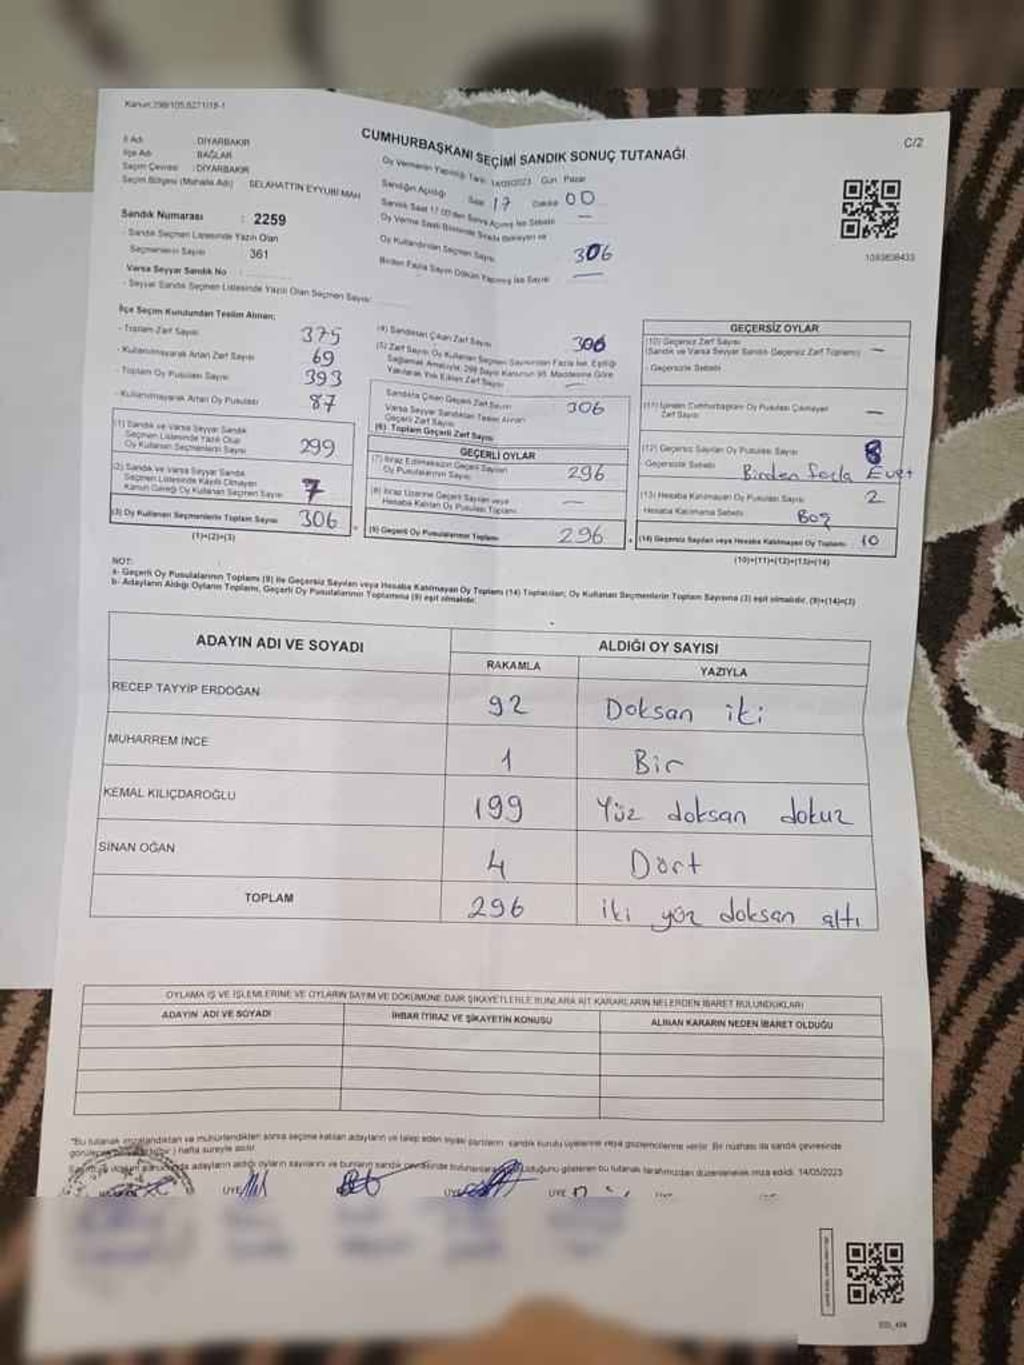 Kanun:298/105,6271/18-1
CUMHURBAŞKANI SEÇİMİ SANDIK SONUÇ TUTANAĞI
C/2
İl Adı : DİYARBAKIR
İlçe Adı : BAĞLAR
Seçim Çevresi : DİYARBAKIR
Seçim Bölgesi (Mahalle Adı) SELAHATTİN EYYUBİ MAH
Sandık Numarası : 2259
- Sandık Seçmen Listesinde Yazılı Olan
Seçmenlerin Sayısı 361
Varsa Seyyar Sandık No :
- Seyyar Sandık Seçmen Listesinde Yazılı Olan Seçmen Sayısı:
Oy Vermenin Yapıldığı Tarih: 14/05/2023 Gün: Pazar
Sandığın Açıldığı Saat 17 Dakika 00
Sandık Saat 17.00'den Sonra Açılmış İse Sebebi —
Oy Kullandırılan Seçmen Sayısı 306
Birden Fazla Sayım Döküm Yapılmış İse Sayısı —
1093638433
İlçe Seçim Kurulundan Teslim Alınan;
- Toplam Zarf Sayısı 375
- Kullanılmayarak Artan Zarf Sayısı 69
- Toplam Oy Pusulası Sayısı 393
- Kullanılmayarak Artan Oy Pusulası 87
(1) Sandık ve Varsa Seyyar Sandık
Seçmen Listesinde Yazılı Olup
Oy Kullanan Seçmenlerin Sayısı 299
(2) Sandık ve Varsa Seyyar Sandık
Seçmen Listesinde Kayıtlı Olmayan
Kanun Gereği Oy Kullanan Seçmen Sayısı 7
(3) Oy Kullanan Seçmenlerin Toplam Sayısı 306
(1)+(2)=(3)
(4) Sandıktan Çıkan Zarf Sayısı 306
(5) Zarf Sayısı Oy Kullanan Seçmen Sayısından Fazla İse, Eşitliği
Sağlamak Amacıyla, 298 Sayılı Kanunun 98. Maddesine Göre
Yakılarak Yok Edilen Zarf Sayısı —
Sandıkta Çıkan Geçerli Zarf Sayısı 306
Varsa Seyyar Sandıktan Teslim Alınan
Geçerli Zarf Sayısı
(6) Toplam Geçerli Zarf Sayısı
GEÇERLİ OYLAR
(7) İtiraz Edilmeksizin Geçerli Sayılan
Oy Pusulalarının Sayısı 296
(8) İtiraz Üzerine Geçerli Sayılan veya
Hesaba Katılan Oy Pusulası Toplamı —
(9) Geçerli Oy Pusulalarının Toplamı 296
GEÇERSİZ OYLAR
(10) Geçersiz Zarf Sayısı
(Sandık ve Varsa Seyyar Sandık Geçersiz Zarf Toplamı) —
Geçersizlik Sebebi :
(11) İçinden Cumhurbaşkanı Oy Pusulası Çıkmayan
Zarf Sayısı —
(12) Geçersiz Sayılan Oy Pusulası Sayısı 8
Geçersizlik Sebebi Birden fazla Evet
(13) Hesaba Katılmayan Oy Pusulası Sayısı 2
Hesaba Katılmama Sebebi Boş
(14) Geçersiz Sayılan veya Hesaba Katılmayan Oy Toplamı 10
(10)+(11)+(12)+(13)=(14)
NOT:
a- Geçerli Oy Pusulalarının Toplamı (9) ile Geçersiz Sayılan veya Hesaba Katılmayan Oy Toplamı (14) Toplamları, Oy Kullanan Seçmenlerin Toplam Sayısına (3) eşit olmalıdır. (9)+(14)=(3)
b- Adayların Aldığı Oyların Toplamı, Geçerli Oy Pusulalarının Toplamına (9) eşit olmalıdır.
ADAYIN ADI VE SOYADI ALDIĞI OY SAYISI
RAKAMLA YAZIYLA
RECEP TAYYİP ERDOĞAN 92 Doksan iki
MUHARREM İNCE 1 Bir
KEMAL KILIÇDAROĞLU 199 Yüz doksan dokuz
SİNAN OĞAN 4 Dört
TOPLAM 296 iki yüz doksan altı
OYLAMA İŞ VE İŞLEMLERİNE VE OYLARIN SAYIM VE DÖKÜMÜNE DAİR ŞİKAYETLERLE BUNLARA AİT KARARLARIN NELERDEN İBARET BULUNDUKLARI
ADAYIN ADI VE SOYADI İHBAR İTİRAZ VE ŞİKAYETİN KONUSU ALINAN KARARIN NEDEN İBARET OLDUĞU
"Bu tutanak imzalandıktan ve mühürlendikten sonra seçime katılan adayların ve talep eden siyasi partilerin sandık kurulu üyelerine veya gözlemcilerine verilir. Bir nüshası da sandık çevresinde
) hafta süreyle asılır.
adayların aldığı oyların sayılarını ve bunların sandık çevresinde olduğunu gösteren bu tutanak tarafımızdan düzenlenerek imza edildi. 14/05/2023
ÜYE ÜYE ÜYE